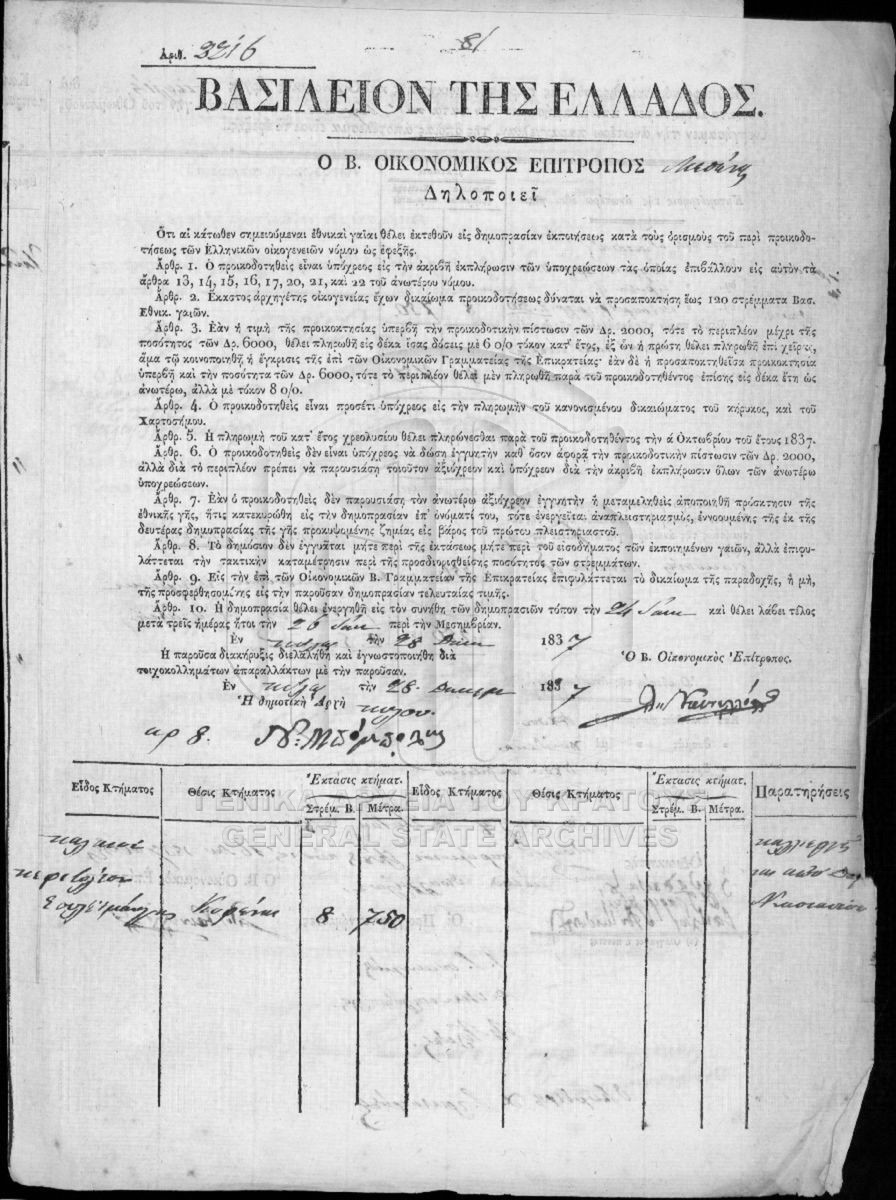 Ἀριθ. 2216
81
ΒΑΣΙΛΕΙΟΝ ΤΗΣ ΕΛΛΑΔΟΣ.
Ο Β. ΟΙΚΟΝΟΜΙΚΟΣ ΕΠΙΤΡΟΠΟΣ
Δηλοποιεῖ
Ὅτι αἱ κάτωθεν σημειούμεναι ἐθνικαὶ γαῖαι θέλει ἐκτεθοῦν εἰς δημοπρασίαν ἐκποιήσεως κατὰ τοὺς ὁρισμοὺς τοῦ περὶ προικοδο-
τήσεως τῶν Ἑλληνικῶν οἰκογενειῶν νόμου ὡς ἐφεξῆς.
Ἄρθρ. 1. Ὁ προικοδοτηθεὶς εἶναι ὑπόχρεος εἰς τὴν ἀκριβῆ ἐκπλήρωσιν τῶν ὑποχρεώσεων τὰς ὁποίας ἐπιβάλλουν εἰς αὐτὸν τὰ
ἄρθρα 13, 14, 15, 16, 17, 20, 21, καὶ 22 τοῦ ἀνωτέρου νόμου.
Ἄρθρ. 2. Ἕκαστος ἀρχηγέτης οἰκογενείας ἔχων δικαίωμα προικοδοτήσεως δύναται νὰ προσαποκτήσῃ ἕως 120 στρέμματα Βασ.
Ἐθνικ. γαιῶν.
Ἄρθρ. 3. Ἐὰν ἡ τιμὴ τῆς προικοκτησίας ὑπερβῇ τὴν προικοδοτικὴν πίστωσιν τῶν Δρ. 2000, τότε τὸ περιπλέον μέχρι τῆς
ποσότητος τῶν Δρ. 6000, θέλει πληρωθῇ εἰς δέκα ἴσας δόσεις μὲ 6 0/0 τόκον κατ' ἔτος, ἐξ ὧν ἡ πρώτη θέλει πληρωθῆ ἐπὶ χεῖρας,
ἅμα τῷ κοινοποιηθῇ ἡ ἔγκρισις τῆς ἐπὶ τῶν Οἰκονομικῶν Γραμματείας τῆς Ἐπικρατείας· ἐὰν δὲ ἡ προσαποκτηθεῖσα προικοκτησία
ὑπερβῇ καὶ τὴν ποσότητα τῶν Δρ. 6000, τότε τὸ περιπλέον θέλει μὲν πληρωθῆ παρὰ τοῦ προικοδοτηθέντος ἐπίσης εἰς δέκα ἔτη ὡς
ἀνωτέρω, ἀλλὰ μὲ τόκον 8 0/0.
Ἄρθρ. 4. Ὁ προικοδοτηθεὶς εἶναι προσέτι ὑπόχρεος εἰς τὴν πληρωμὴν τοῦ κανονισμένου δικαιώματος τοῦ κήρυκος, καὶ τοῦ
Χαρτοσήμου.
Ἄρθρ. 5. Ἡ πληρωμὴ τοῦ κατ' ἔτος χρεολυσίου θέλει πληρώνεσθαι παρὰ τοῦ προικοδοτηθέντος τὴν ά Ὀκτωβρίου τοῦ ἔτους 1837.
Ἄρθρ. 6. Ὁ προικοδοτηθεὶς δὲν εἶναι ὑπόχρεος νὰ δώσῃ ἐγγυητὴν καθ' ὅσον ἀφορᾷ τὴν προικοδοτικὴν πίστωσιν τῶν Δρ. 2000,
ἀλλὰ διὰ τὸ περιπλέον πρέπει νὰ παρουσιάσῃ τοιοῦτον ἀξιόχρεον καὶ ὑπόχρεον διὰ τὴν ἀκριβῆ ἐκπλήρωσιν ὅλων τῶν ἀνωτέρω
ὑποχρεώσεων.
Ἄρθρ. 7. Ἐὰν ὁ προικοδοτηθεὶς δὲν παρουσιάσῃ τὸν ἀνωτέρω ἀξιόχρεον ἐγγυητὴν ἢ μεταμεληθεὶς ἀποποιηθῇ πρόσκτησιν τῆς
ἐθνικῆς γῆς, ἥτις κατεκυρώθη εἰς τὴν δημοπρασίαν ἐπ' ὀνόματί του, τότε ἐνεργεῖται ἀναπλειστηριασμὸς, ἐννοουμένης τῆς ἐκ τῆς
δευτέρας δημοπρασίας τῆς γῆς προκυψομένης ζημίας εἰς βάρος τοῦ πρώτου πλειστηριαστοῦ.
Ἄρθρ. 8. Τὸ δημόσιον δὲν ἐγγυᾶται μήτε περὶ τῆς ἐκτάσεως μήτε περὶ τοῦ εἰσοδήματος τῶν ἐκποιημένων γαιῶν, ἀλλὰ ἐπιφυ-
λάττεται τὴν τακτικὴν καταμέτρησιν περὶ τῆς προσδιορισθείσης ποσότητος τῶν στρεμμάτων.
Ἄρθρ. 9. Εἰς τὴν ἐπὶ τῶν Οἰκονομικῶν Β. Γραμματείαν τῆς Ἐπικρατείας ἐπιφυλάττεται τὸ δικαίωμα τῆς παραδοχῆς, ἢ μὴ,
τῆς προσφερθησομένης εἰς τὴν παροῦσαν δημοπρασίαν τελευταίας τιμῆς.
Ἄρθρ. 10. Ἡ δημοπρασία θέλει ἐνεργηθῆ εἰς τὸν συνήθη τῶν δημοπρασιῶν τόπον τὴν 24 καὶ θέλει λάβει τέλος
μετὰ τρεῖς ἡμέρας ἤτοι τὴν 26 περὶ τὴν Μεσημβρίαν.
Ἐν τὴν 28 1837
Ἡ παροῦσα διακήρυξις διελαλήθη καὶ ἐγνωστοποιήθη διὰ Ὁ Β. Οἰκονομικὸς Ἐπίτροπος.
τοιχοκολλημάτων ἀπαραλλάκτων μὲ τὴν παροῦσαν.
Ἐν τὴν 28 1837
Ἡ δημοτικὴ Ἀρχὴ
αρ 8.
Εἶδος Κτήματος Θέσις Κτήματος Ἔκτασις κτήματ. Εἶδος Κτήματος Θέσις Κτήματος Ἔκτασις κτήματ. Παρατηρήσεις
Στρέμ. Β. Μέτρα. Στρέμ. Β. Μέτρα.
ΓΕΝΙΚΑ ΑΡΧΕΙΑ ΤΟΥ ΚΡΑΤΟΥΣ
GENERAL STATE ARCHIVES
8 750